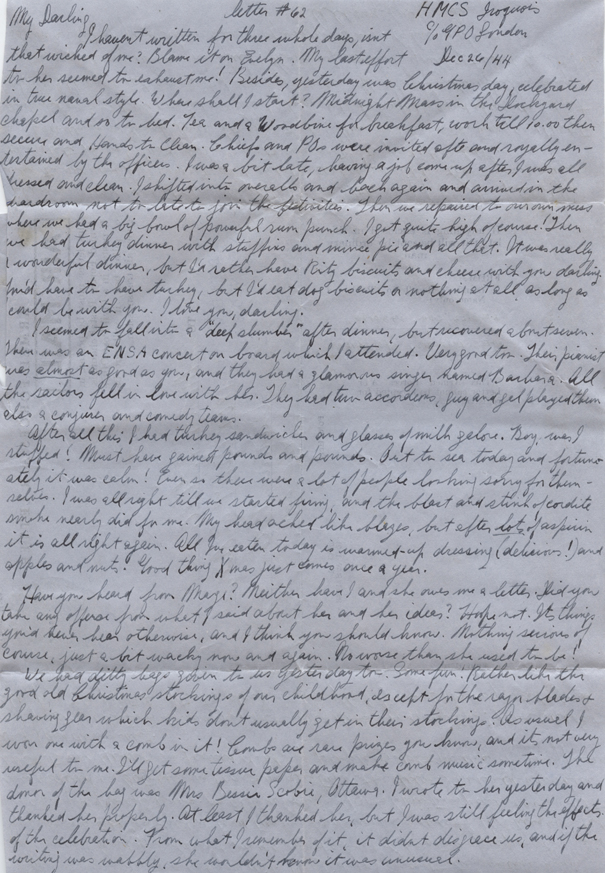 My Darling, letter #62 HMCS Iroquois
I haven't written for three whole days, isnt % GPO London
that wicked of me? Blame it on Evelyn. My last effort Dec 26/44
to her seemed to exhaust me! Besides, yesterday was Christmas day, celebrated
in true naval style. Where shall I start? Midnight Mass in the Dockyard
chapel and so to bed. Tea and a Woodbine for breakfast, work till 10.00 then
secure and Hands to Clean. Chiefs and POs were invited aft and royally en-
tertained by the officers. I was a bit late, having a job come up after I was all
dressed and clean. I shifted into overalls and back again and arrived in the
wardroom not to late to join the festivities. Then we repaired to our own mess
where we had a big bowl of powerful rum punch. I got quite high of course! Then
we had turkey dinner with stuffing and mince pie and all that. It was really
a wonderful dinner, but I'd rather have Ritz biscuits and cheese with you darling.
have to have turkey, but I'd eat dog biscuits or nothing at all as long as
could be with you. I love you, darling.
I seemed to fall into a "deep slumber" after dinner, but recovered about seven.
There was an ENSA concert on board which I attended. Very good too. Their pianist
was almost as good as you, and they had a glamorous singer named Barbara. All
the sailors fell in love with her. They had two accordions, guy and gal played them
also a conjurer and comedy teams.
After all this I had turkey sandwiches and glasses of milk galore. Boy, was I
stuffed! Must have gained pounds and pounds. Out to sea today and fortun-
ately it was calm! Even so there were a lot of people looking sorry for them-
selves. I was all right till we started firing, and the blast and stink of cordite
smoke nearly did for me. My head ached like blazes, but after lots of aspirin
it is all right again. All I've eaten today is warmed-up dressing (delicious!) and
apples and nuts! Good thing Xmas just comes once a year.
Have you heard from Marge? Neither have I and she owes me a letter. Did you
take any offense from what I said about her and her ideas? Hope not. Its things
you'd never hear otherwise, and I think you should know. Nothing serious of
course, just a bit wacky now and again. No worse than she used to be!
We had ditty bags given to us yesterday too. Some fun! Rather like the
good old Christmas stockings of our childhood, except for the razor blades &
shaving gear which kids don't usually get in their stockings. As usual I
won one with a comb in it! Combs are rare prizes you know, and it's not very
useful to me. I'll get some tissue paper and make comb music sometime. The
donor of the bag was Mrs Bessie Scobie, Ottawa. I wrote to her yesterday and
thanked her properly. At least I thanked her, but I was still feeling the effects
of the celebration. From what I remember of it, it didn't disgrace us, and if the
writing was wabbly, she wouldn't know it was unusual.